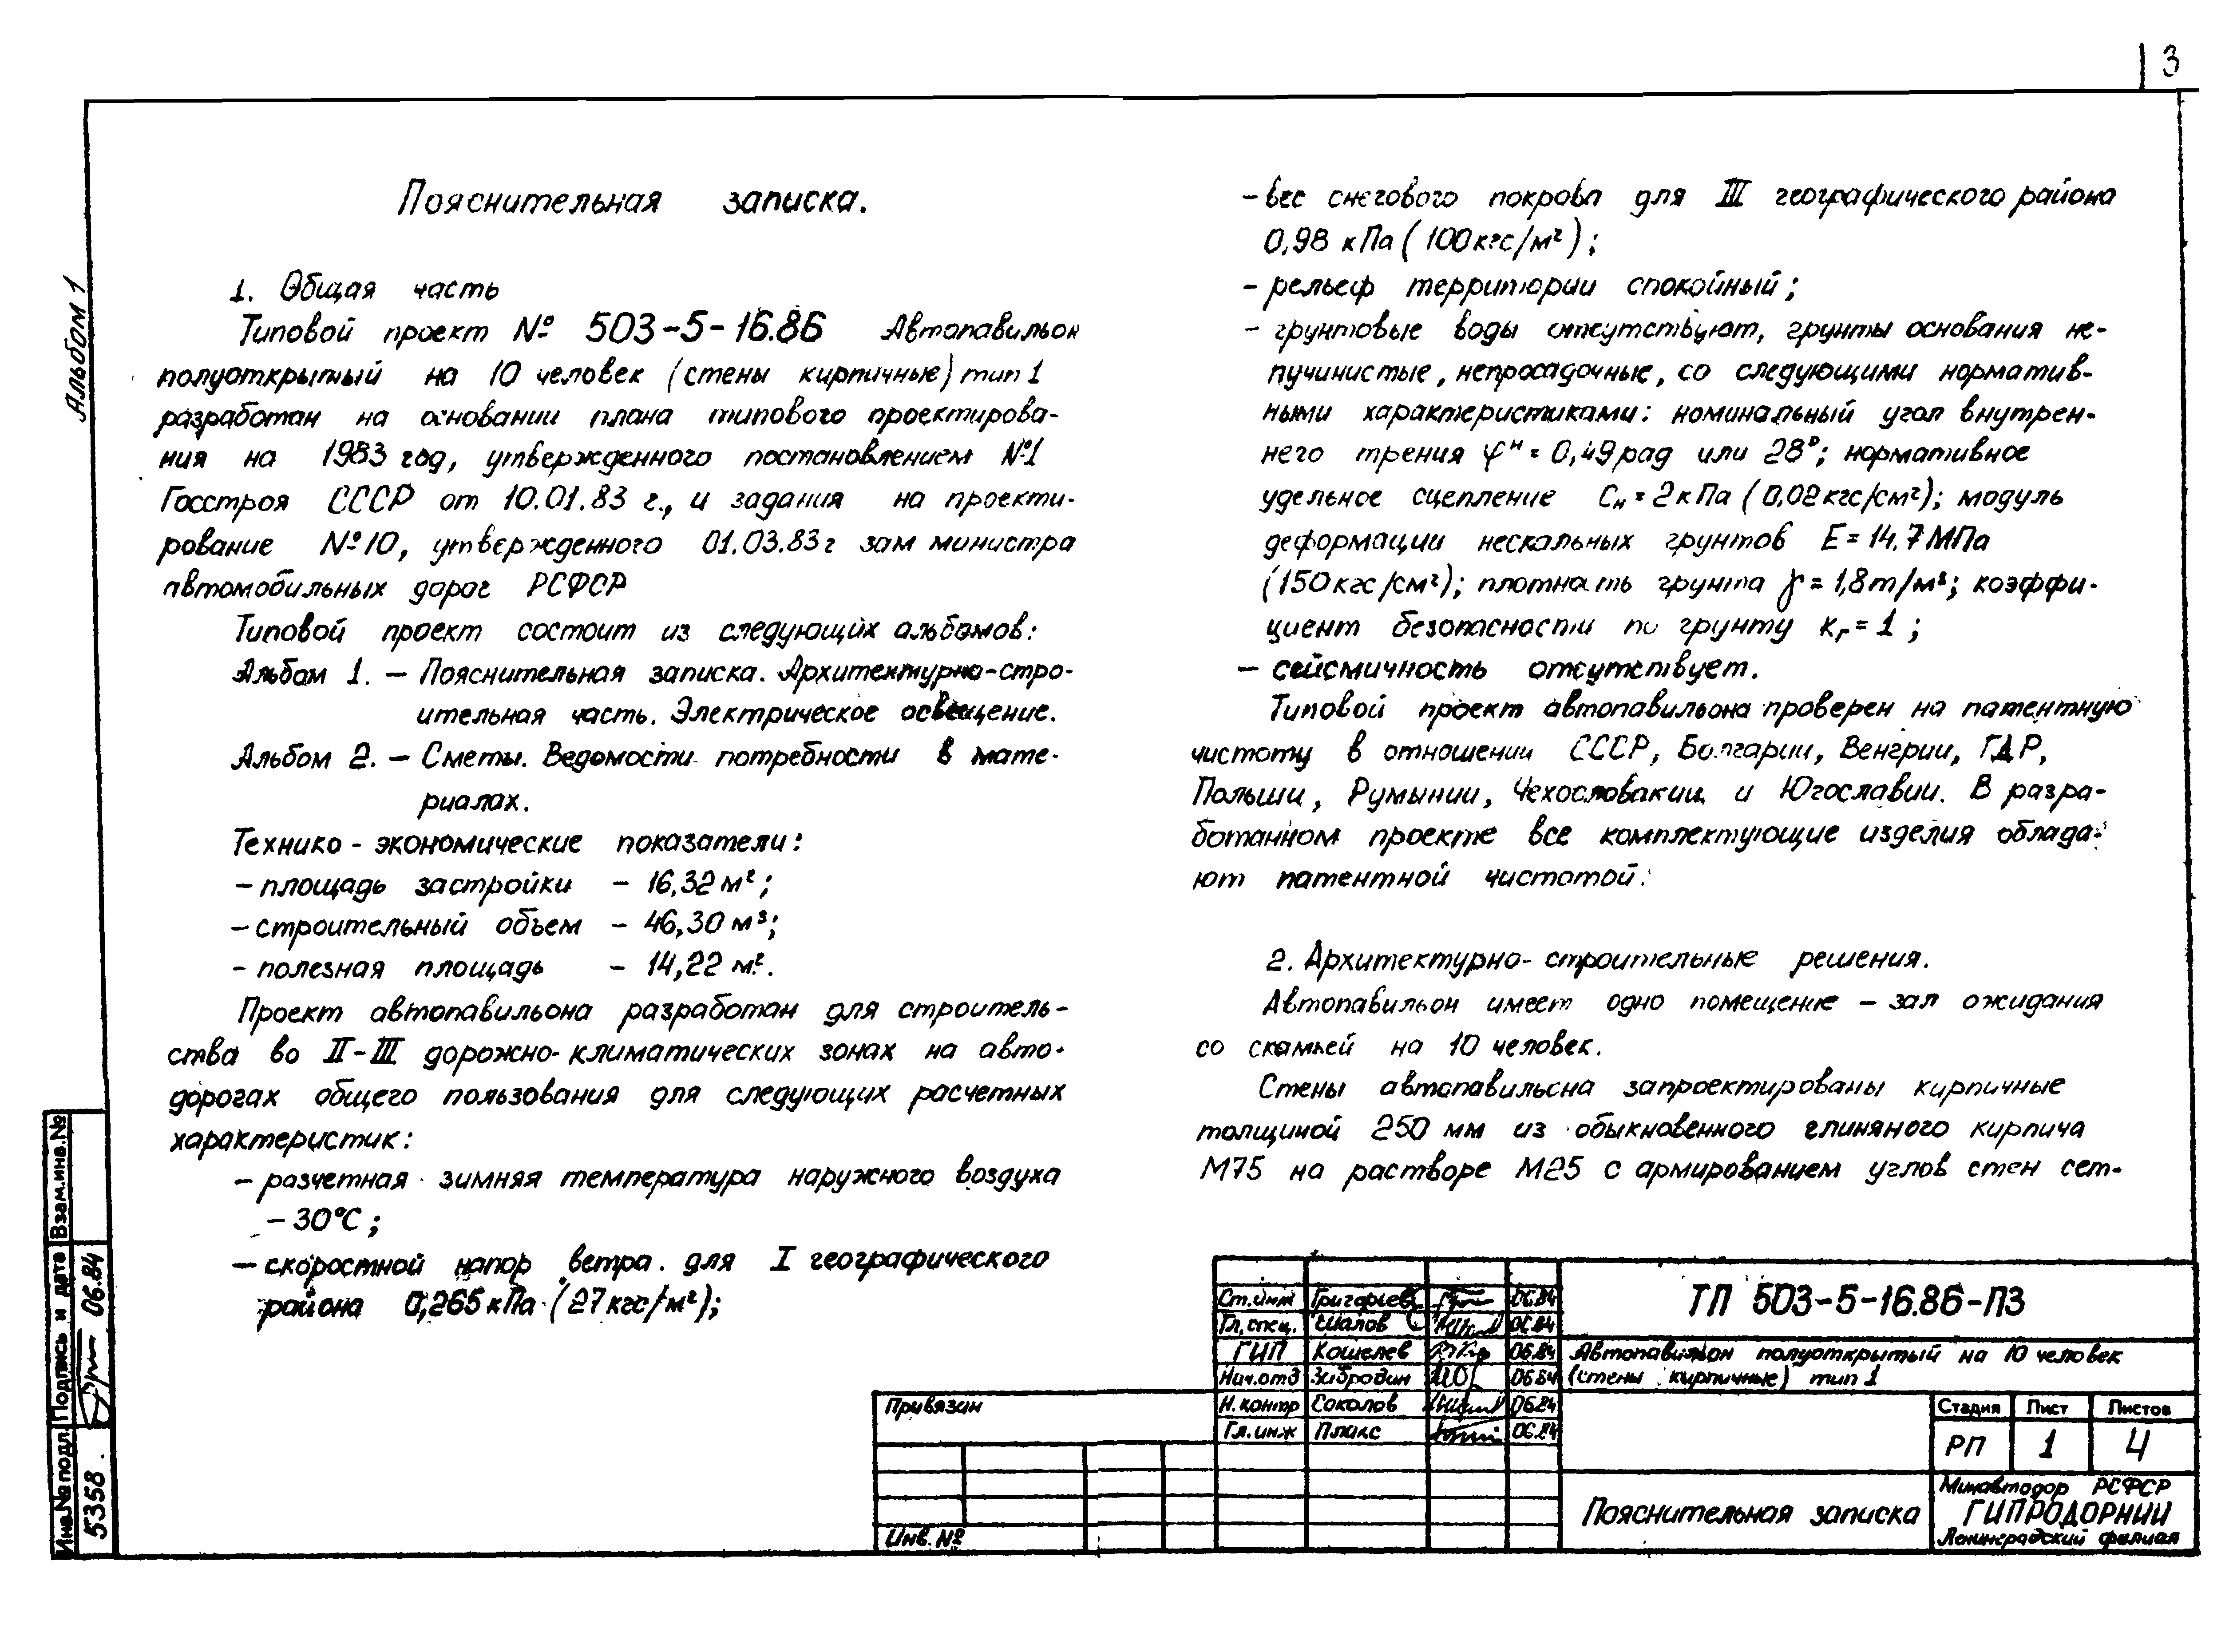 3
Альбом 1
Пояснительная записка.
1. Общая часть
Типовой проект № 503-5-16.86 Автопавильон
полуоткрытый на 10 человек (стены кирпичные) тип 1
разработан на основании плана типового проектирова-
ния на 1983 год, утвержденного постановлением №1
Госстроя СССР от 10.01.83 г., и задания на проекти-
рование №10, утвержденного 01.03.83г зам министра
автомобильных дорог РСФСР
Типовой проект состоит из следующих альбомов:
Альбом 1. – Пояснительная записка. Архитектурно-стро-
ительная часть. Электрическое освещение.
Альбом 2. – Сметы. Ведомости потребности в мате-
риалах.
Технико - экономические показатели:
– площадь застройки – 16,32 м²;
– строительный объем – 46,30 м³;
– полезная площадь – 14,22 м².
Проект автопавильона разработан для строитель-
ства во II-III дорожно-климатических зонах на авто-
дорогах общего пользования для следующих расчетных
характеристик:
– разчетная зимняя температура наружного воздуха
– 30°С;
– скоростной напор ветра для I географического
района 0,265 кПа (27 кгс/м²);
– вес снегового покрова для III географического района
0,98 кПа (100 кгс/м²);
– рельеф территории спокойный;
– грунтовые воды отсутствуют, грунты основания не-
пучинистые, непросадочные, со следующими норматив-
ными характеристиками: номинальный угол внутрен-
него трения φᴴ = 0,49 рад или 28°; нормативное
удельное сцепление Сн = 2 кПа (0,02 кгс/см²); модуль
деформации нескальных грунтов Е = 14,7 МПа
(150 кгс/см²); плотность грунта γ = 1,8 т/м³; коэффи-
циент безопасности по грунту кг = 1;
– сейсмичность отсутствует.
Типовой проект автопавильона проверен на патентную
чистоту в отношении СССР, Болгарии, Венгрии, ГДР,
Польши, Румынии, Чехословакии и Югославии. В разра-
ботанном проекте все комплектующие изделия облада-
ют патентной чистотой.
2. Архитектурно-строительные решения.
Автопавильон имеет одно помещение – зал ожидания
со скамьей на 10 человек.
Стены автопавильона запроектированы кирпичные
толщиной 250 мм из обыкновенного глиняного кирпича
М75 на растворе М25 с армированием углов стен сет-
Взам.инв.№
Подпись и дата 06.84
Инв.№ подл. 5358
Привязан
Инв. №
Ст.инж Григорьев 06.84
Гл.спец. Шалов 06.84
ГИП Кошелев 06.84
Нач.отд Зибродин 06.84
Н.контр Соколов 06.84
Гл.инж Плакс 06.84
ТП 503-5-16.86-ПЗ
Автопавильон полуоткрытый на 10 человек
(стены кирпичные) тип 1
Стадия Лист Листов
РП 1 4
Пояснительная записка
Минавтодор РСФСР
ГИПРОДОРНИИ
Ленинградский филиал